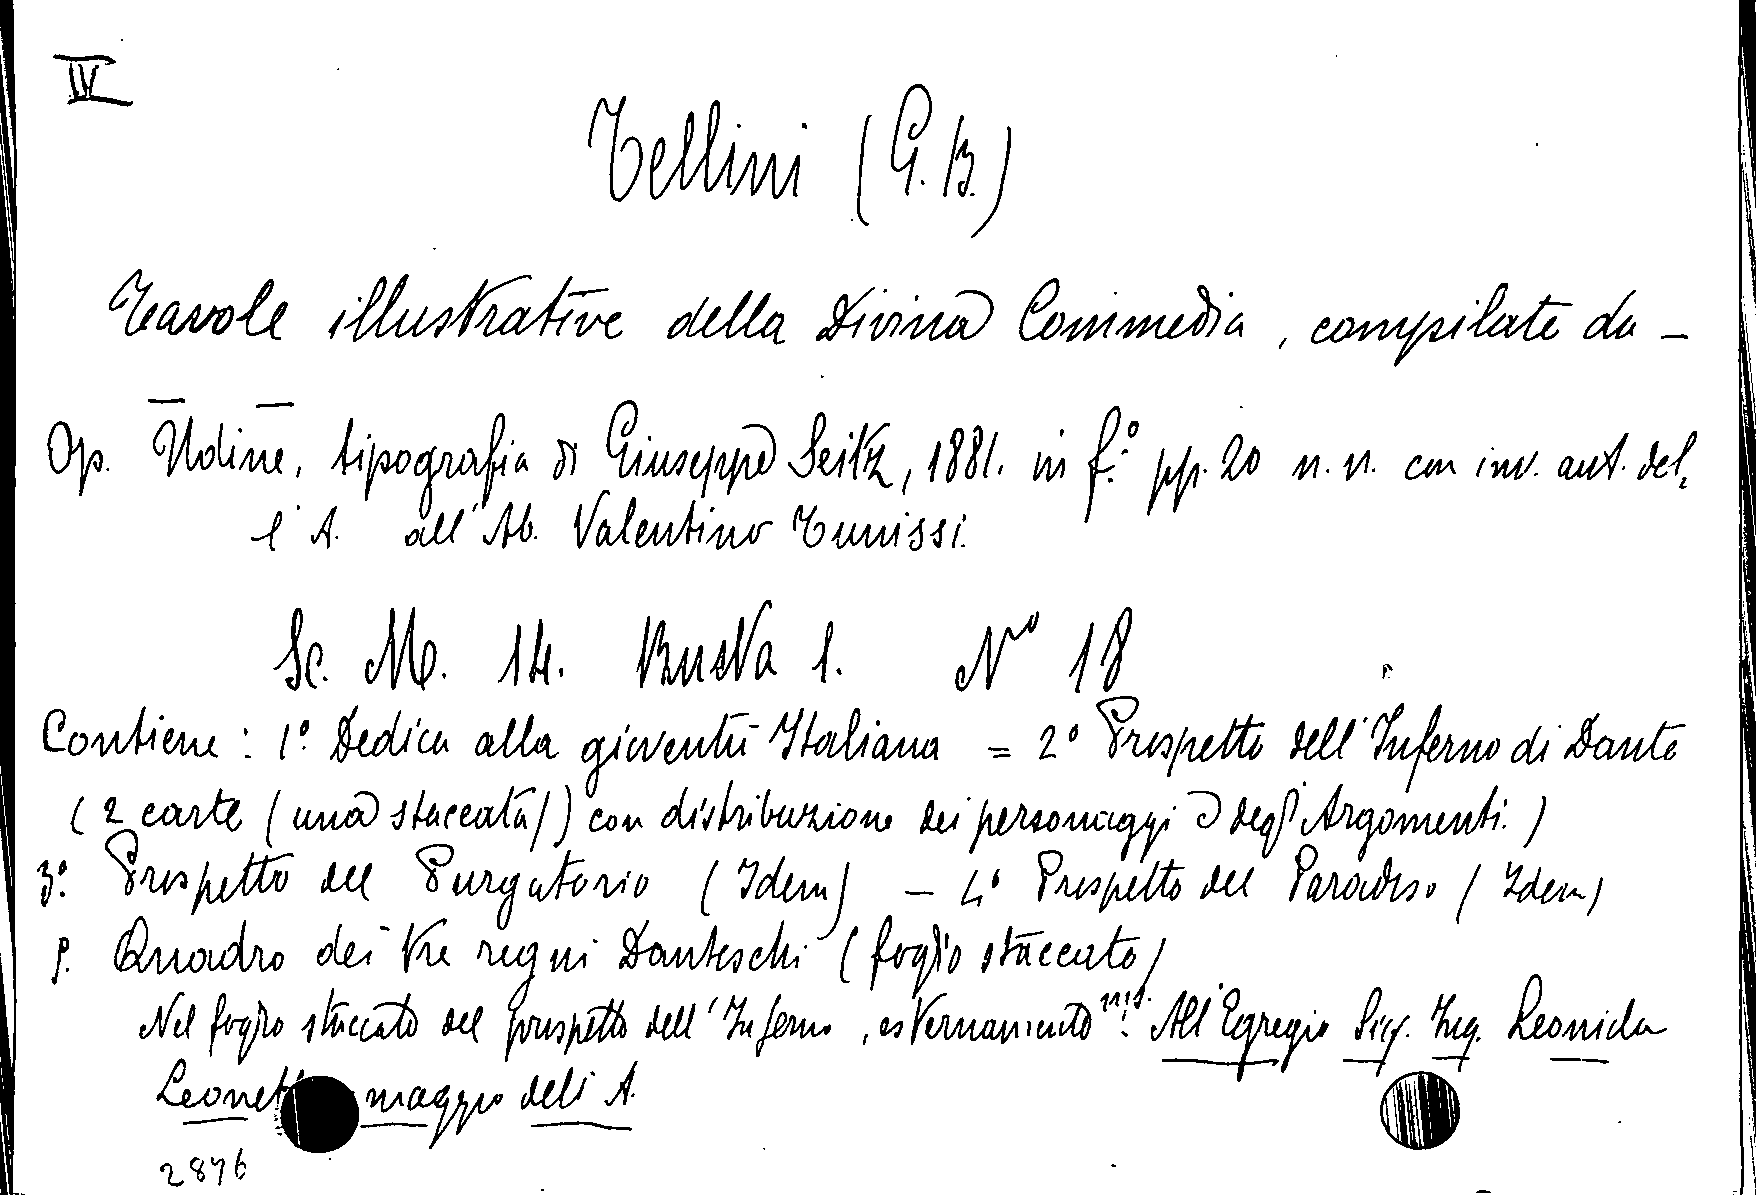 IV
Tellini (G. B.)
Tavole illustrative della Divina Commedia, compilate da -
Op. Udine, tipografia di Giuseppe Seitz, 1881. in f.° pp. 20 n. n. con inv. aut. del,
l'A. all'Ab. Valentino Tunissi.
Sc. M. 14. Busta 1. N° 18
Contiene: 1° Dedica alla gioventù Italiana = 2° Prospetto dell'Inferno di Dante
(2 carte (una staccata)) con distribuzione dei personaggi e degl'Argomenti.)
3° Prospetto del Purgatorio (Idem) - 4° Prospetto del Paradiso (Idem)
5. Quadro dei tre regni Danteschi (foglio staccato)
Nel foglio staccato del prospetto dell'Inferno, esternamente ms.: All'Egregio Sig. Ing. Leonida
Leonet maggio dell'A.
2876